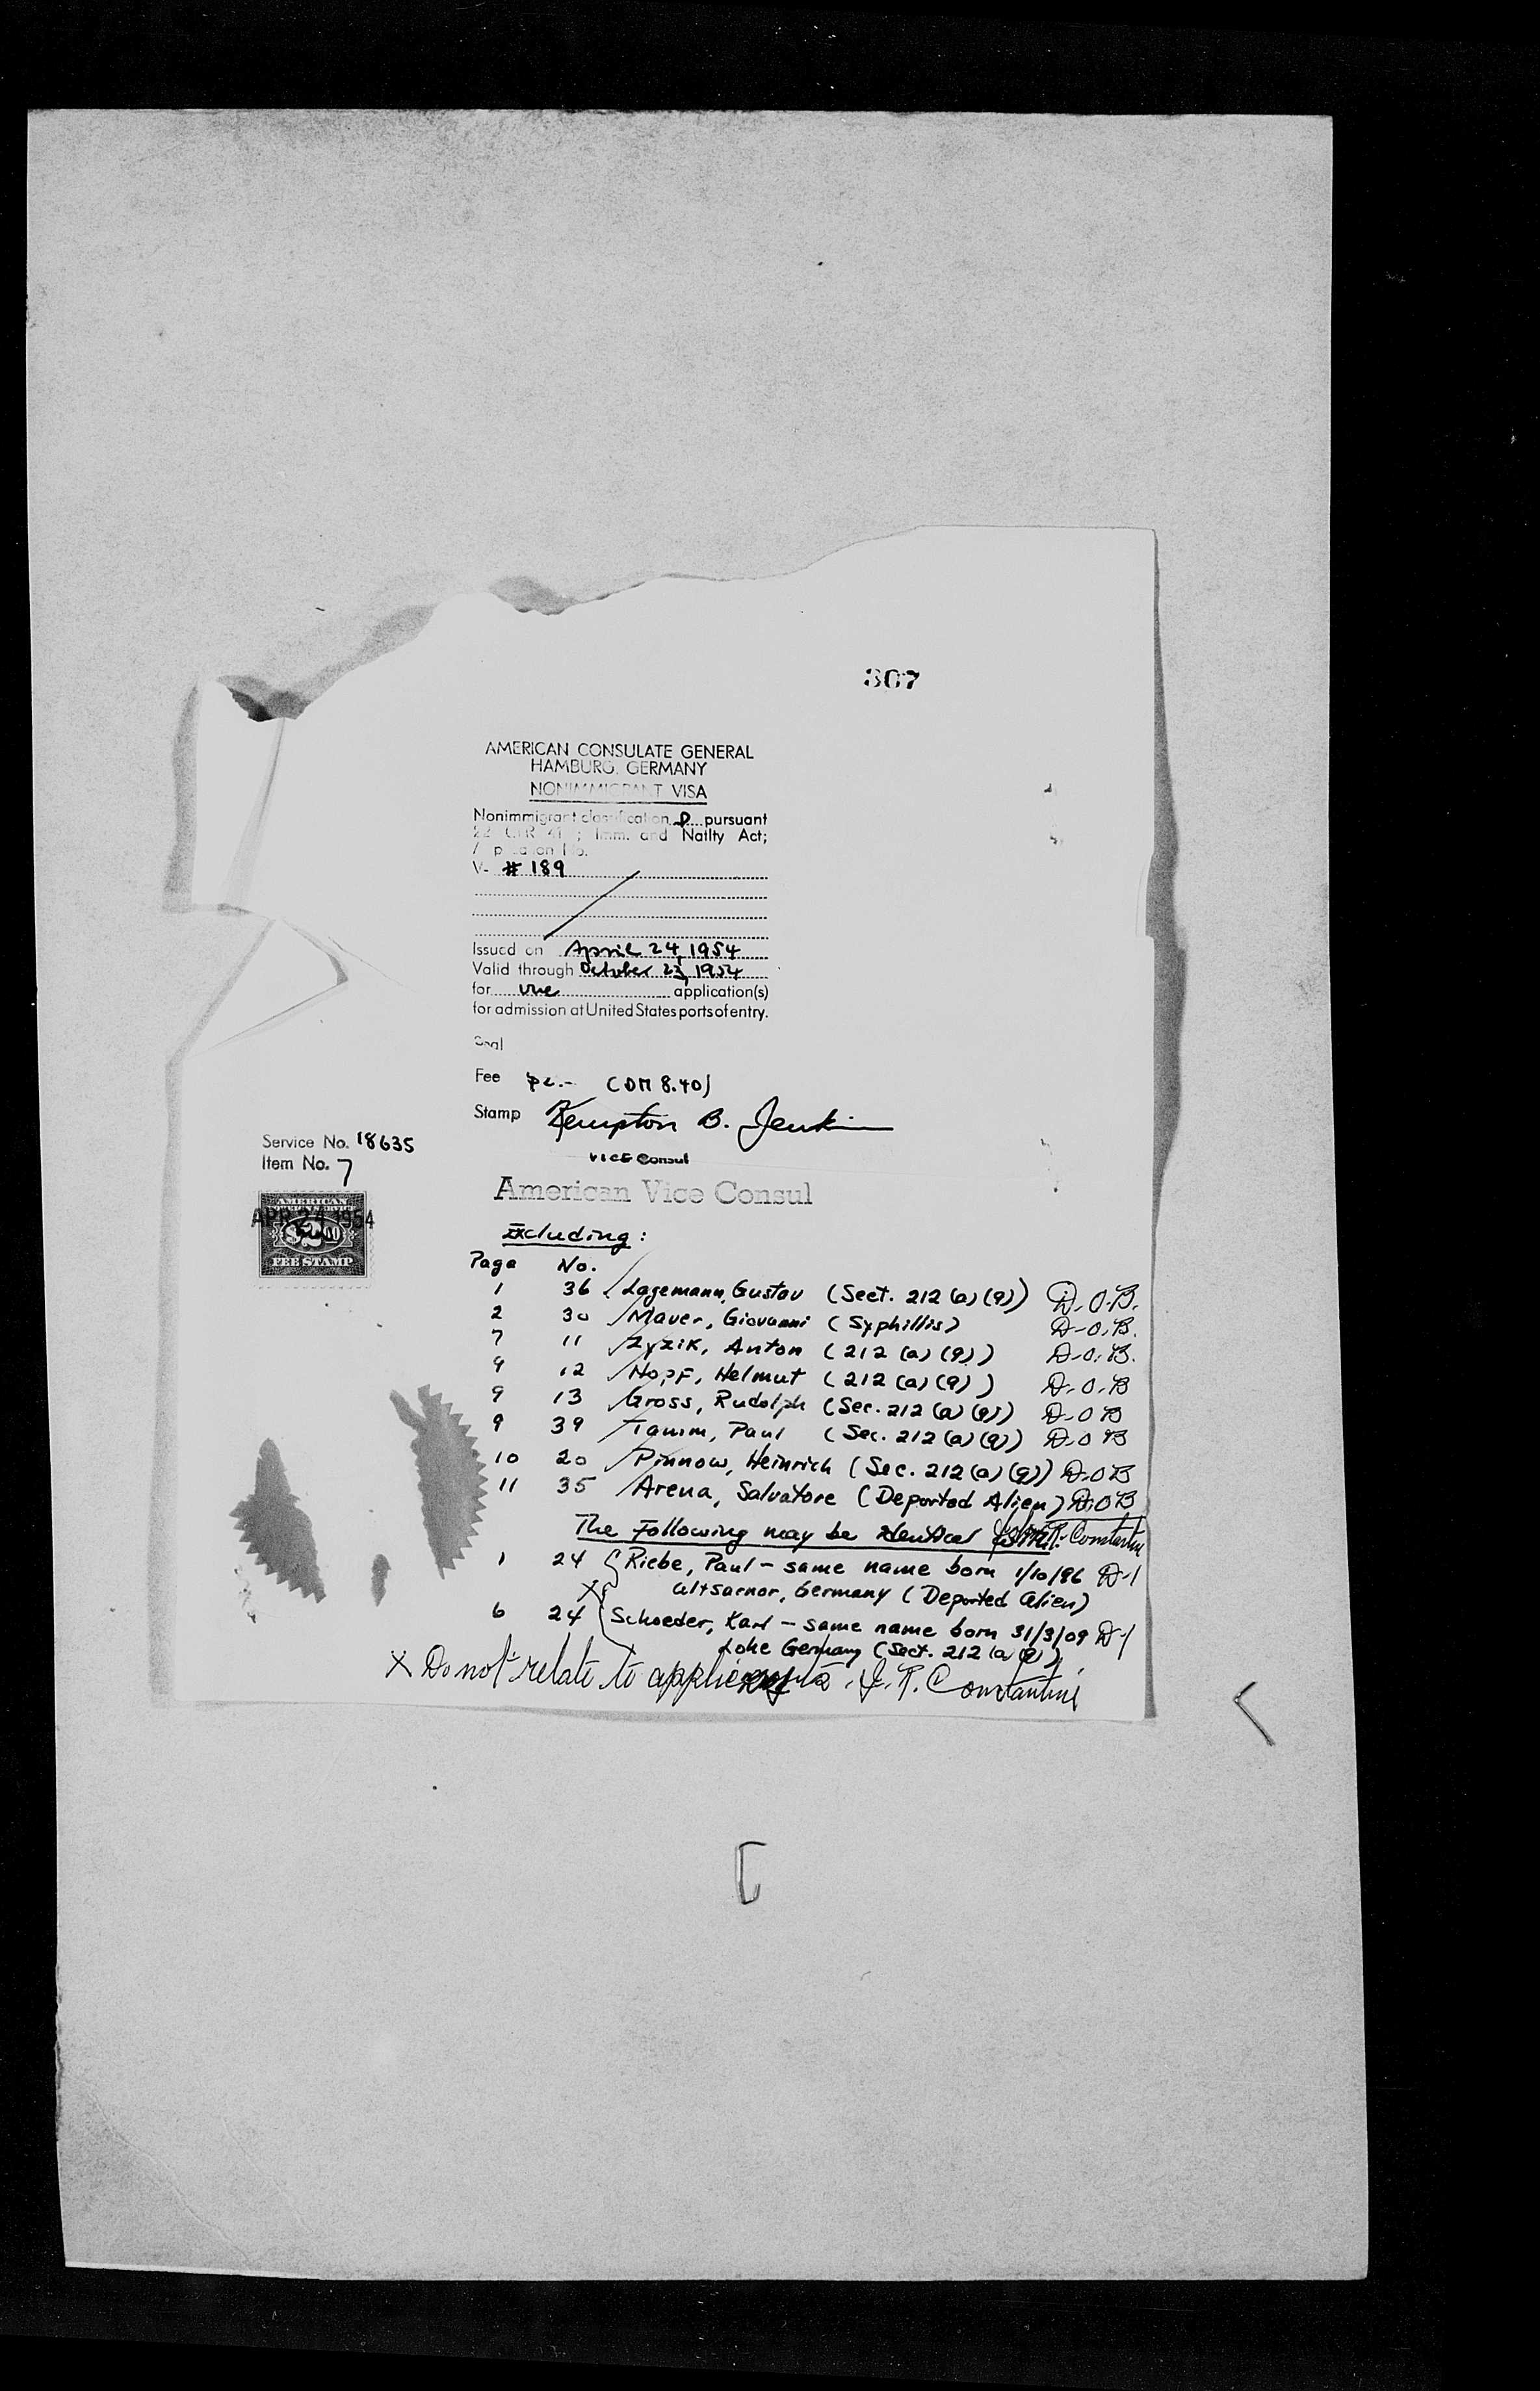 307
AMERICAN CONSULATE GENERAL
HAMBURG, GERMANY
NONIMMIGRANT VISA
Nonimmigrant classification D pursuant
22 CFR 41 ; Imm. and Natlty Act;
Application No.
V- # 189
Issued on April 24, 1954
Valid through October 23, 1954
for one application(s)
for admission at United States ports of entry.
Seal
Fee (DM 8.40)
Stamp Kempton B. Jenkins
Vice Consul
American Vice Consul
Service No. 18635
Item No. 7
AMERICAN
APR 24 1954
$2.00
FEE STAMP
Excluding:
Page No.
1 36 Lagemann, Gustav (Sect. 212 (a) (9)) D.O.B.
2 30 Maver, Giovanni (Syphillis) D-O.B.
7 11 Zyzik, Anton (212 (a) (9)) D-O.B.
9 12 Hopf, Helmut (212 (a) (9)) D.O.B
9 13 Gross, Rudolph (Sec. 212 (a) (9)) D-O B
9 39 Tamm, Paul (Sec. 212 (a) (9)) D.O B
10 20 Pinnow, Heinrich (Sec. 212 (a) (9)) D.O B
11 35 Arena, Salvatore (Deported Alien) D.O B
The Following may be identical with: Constantine
1 24 Riebe, Paul - same name born 1/10/86 D-1
Altsarnor, Germany (Deported Alien)
6 24 Schoeder, Karl - same name born 31/3/09 D-1
Lohe Germany (Sect. 212 (a) (9))
X Do not relate to applicants. J. R. Constantine